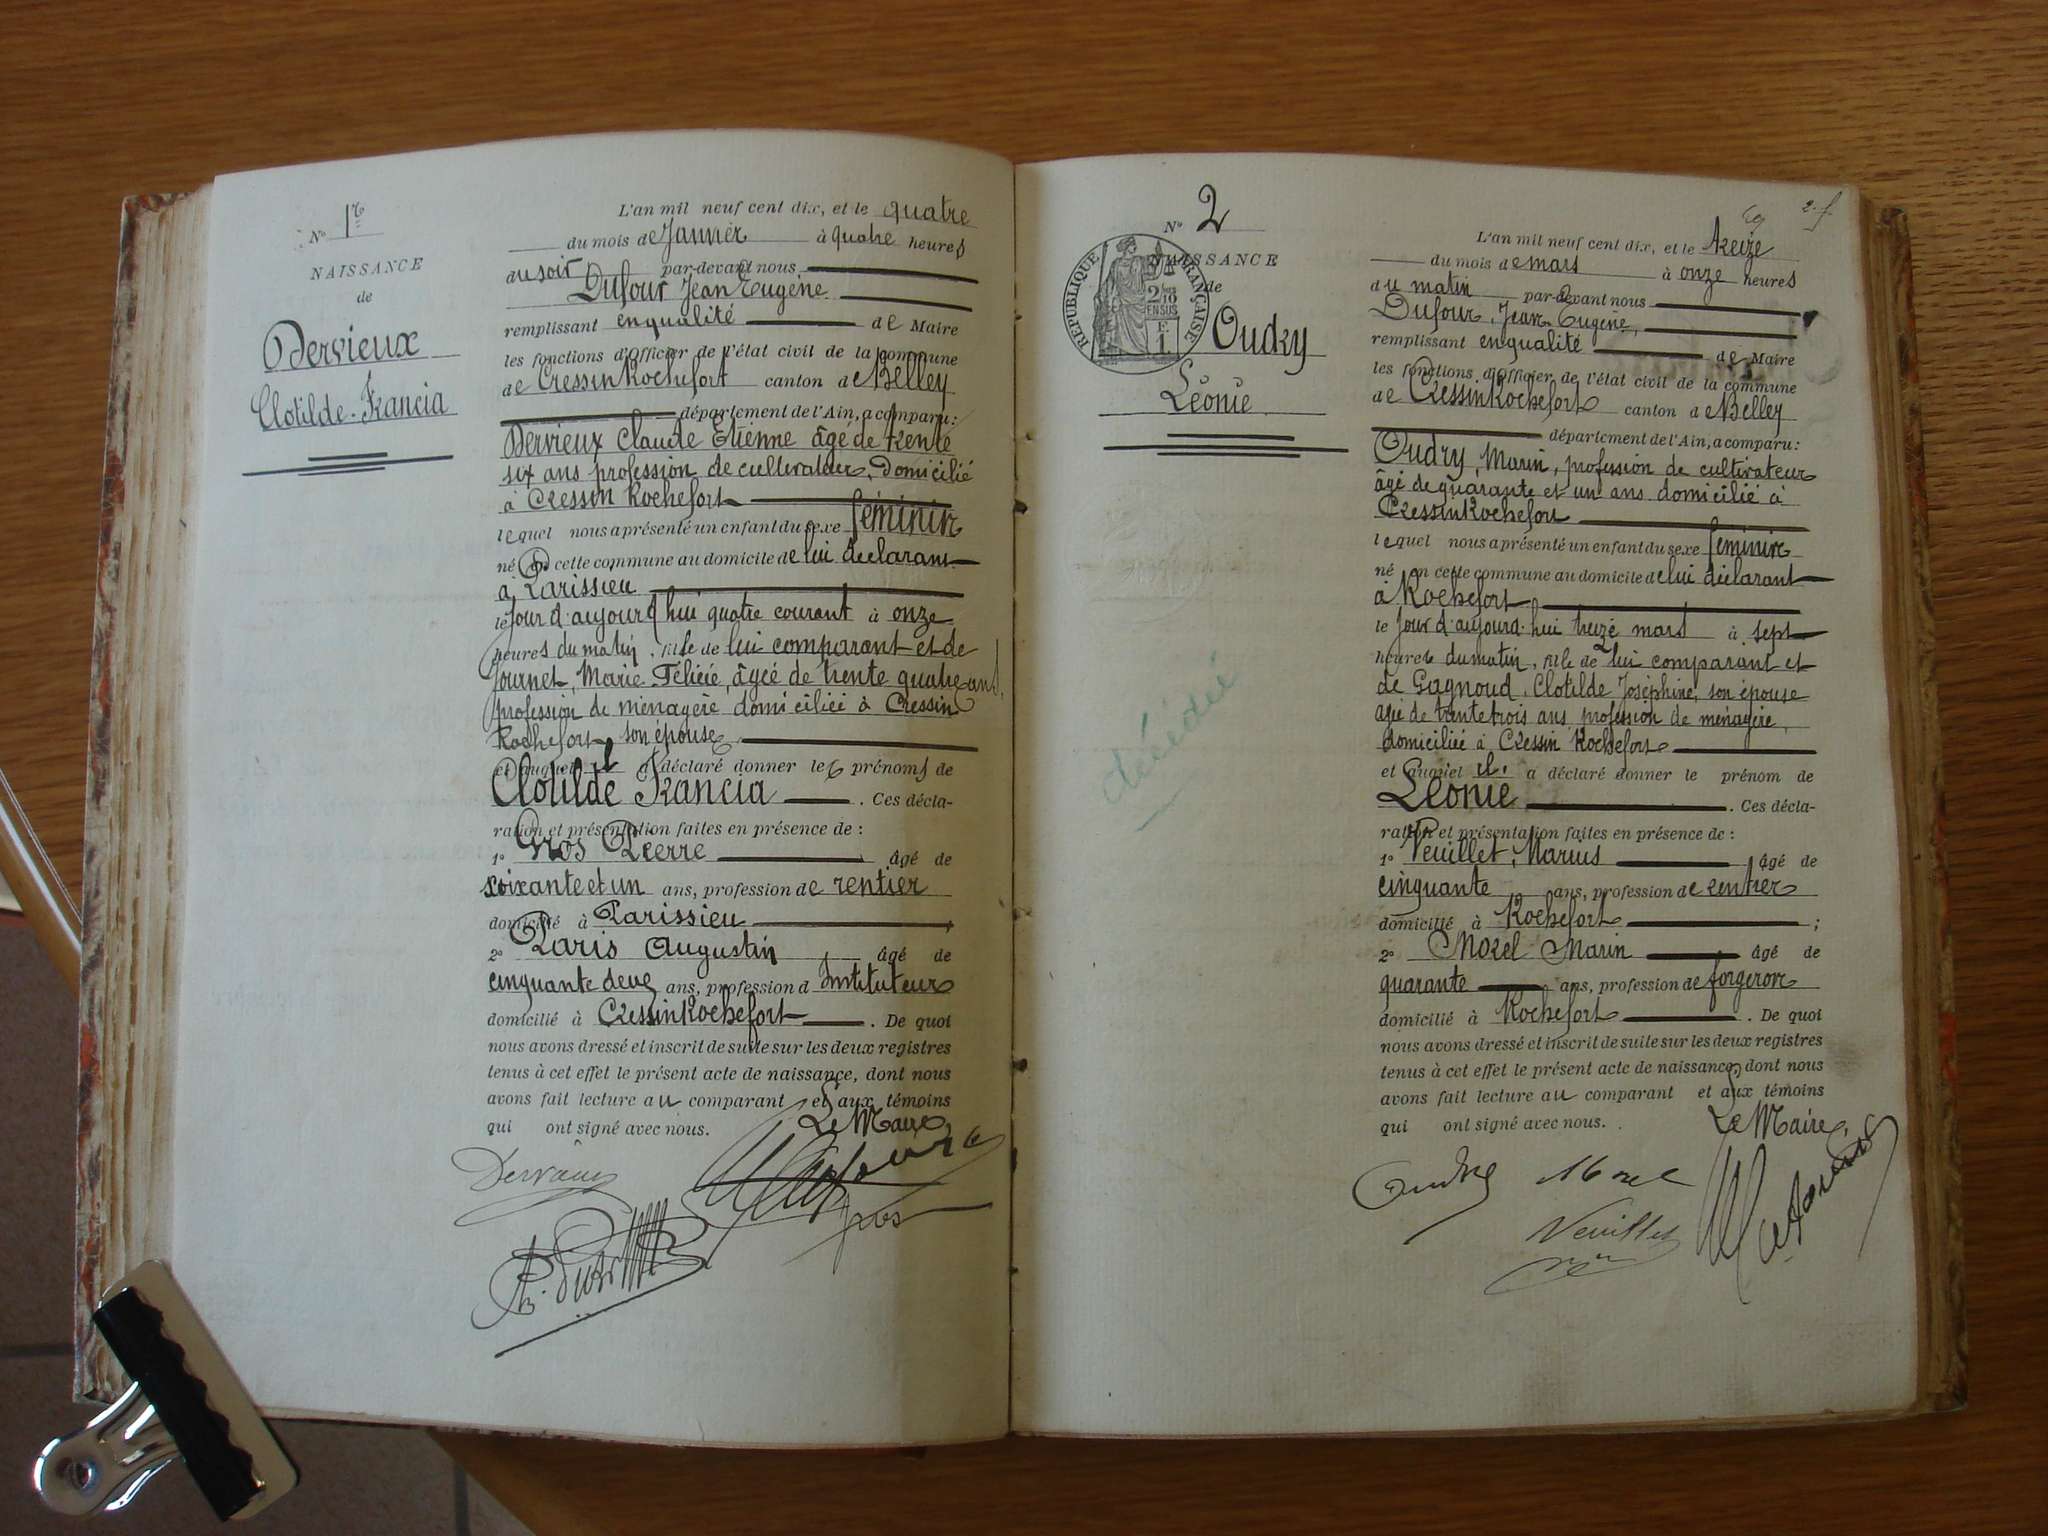 N° 1r
NAISSANCE
de
Dervieux
Clotilde Francia
L'an mil neuf cent dix, et le quatre
du mois de Janvier à quatre heures
du soir par-devant nous
Dufour Jean Eugène
remplissant en qualité de Maire
les fonctions d'Officier de l'état civil de la commune
de Cressin Rochefort canton de Belley
département de l'Ain, a comparu:
Dervieux Claude Etienne âgé de trente
six ans profession de cultivateur, domicilié
à Cressin Rochefort
lequel nous a présenté un enfant du sexe féminin
né en cette commune au domicile de lui déclarant
à Parissieu
le jour d'aujourd'hui quatre courant à onze
heures du matin, fille de lui comparant et de
Journet, Marie Félicie, âgée de trente quatre ans,
profession de ménagère domiciliée à Cressin
Rochefort, son épouse
et auquel il a déclaré donner les prénoms de
Clotilde Francia . Ces décla-
ration et présentation faites en présence de :
1° Gros Pierre âgé de
soixante et un ans, profession de rentier
domicilié à Parissieu ;
2° Paris Augustin âgé de
cinquante deux ans, profession d Instituteur
domicilié à Cressin Rochefort . De quoi
nous avons dressé et inscrit de suite sur les deux registres
tenus à cet effet le présent acte de naissance, dont nous
avons fait lecture au comparant et aux témoins
qui ont signé avec nous.
Le Maire,
Dervieux
Dufour
gros
2. f.
N° 2
NAISSANCE
de
RÉPUBLIQUE FRANÇAISE
2/10
EN SUS
F.
1
Oudry
Léonie
décédée
L'an mil neuf cent dix, et le treize
du mois de mars à onze heures
du matin par-devant nous
Dufour, Jean Eugène,
remplissant en qualité de Maire
les fonctions d'Officier de l'état civil de la commune
de Cressin Rochefort canton de Belley
département de l'Ain, a comparu:
Oudry, Marin, profession de cultivateur
âgé de quarante et un ans domicilié à
Cressin Rochefort
lequel nous a présenté un enfant du sexe féminin
né en cette commune au domicile de lui déclarant
à Rochefort
le jour d'aujourd'hui treize mars à sept
heures du matin, fille de lui comparant et
de Gagnoud, Clotilde Joséphine, son épouse
agée de trente trois ans profession de ménagère,
domiciliée à Cressin Rochefort
et auquel il a déclaré donner le prénom de
Léonie . Ces décla-
ration et présentation faites en présence de :
1° Veuillet, Marius âgé de
cinquante ans, profession de rentier
domicilié à Rochefort ;
2° Morel Marin âgé de
quarante ans, profession de forgeron
domicilié à Rochefort . De quoi
nous avons dressé et inscrit de suite sur les deux registres
tenus à cet effet le présent acte de naissance, dont nous
avons fait lecture au comparant et aux témoins
qui ont signé avec nous.
Le Maire,
Oudry Morel
Veuillet